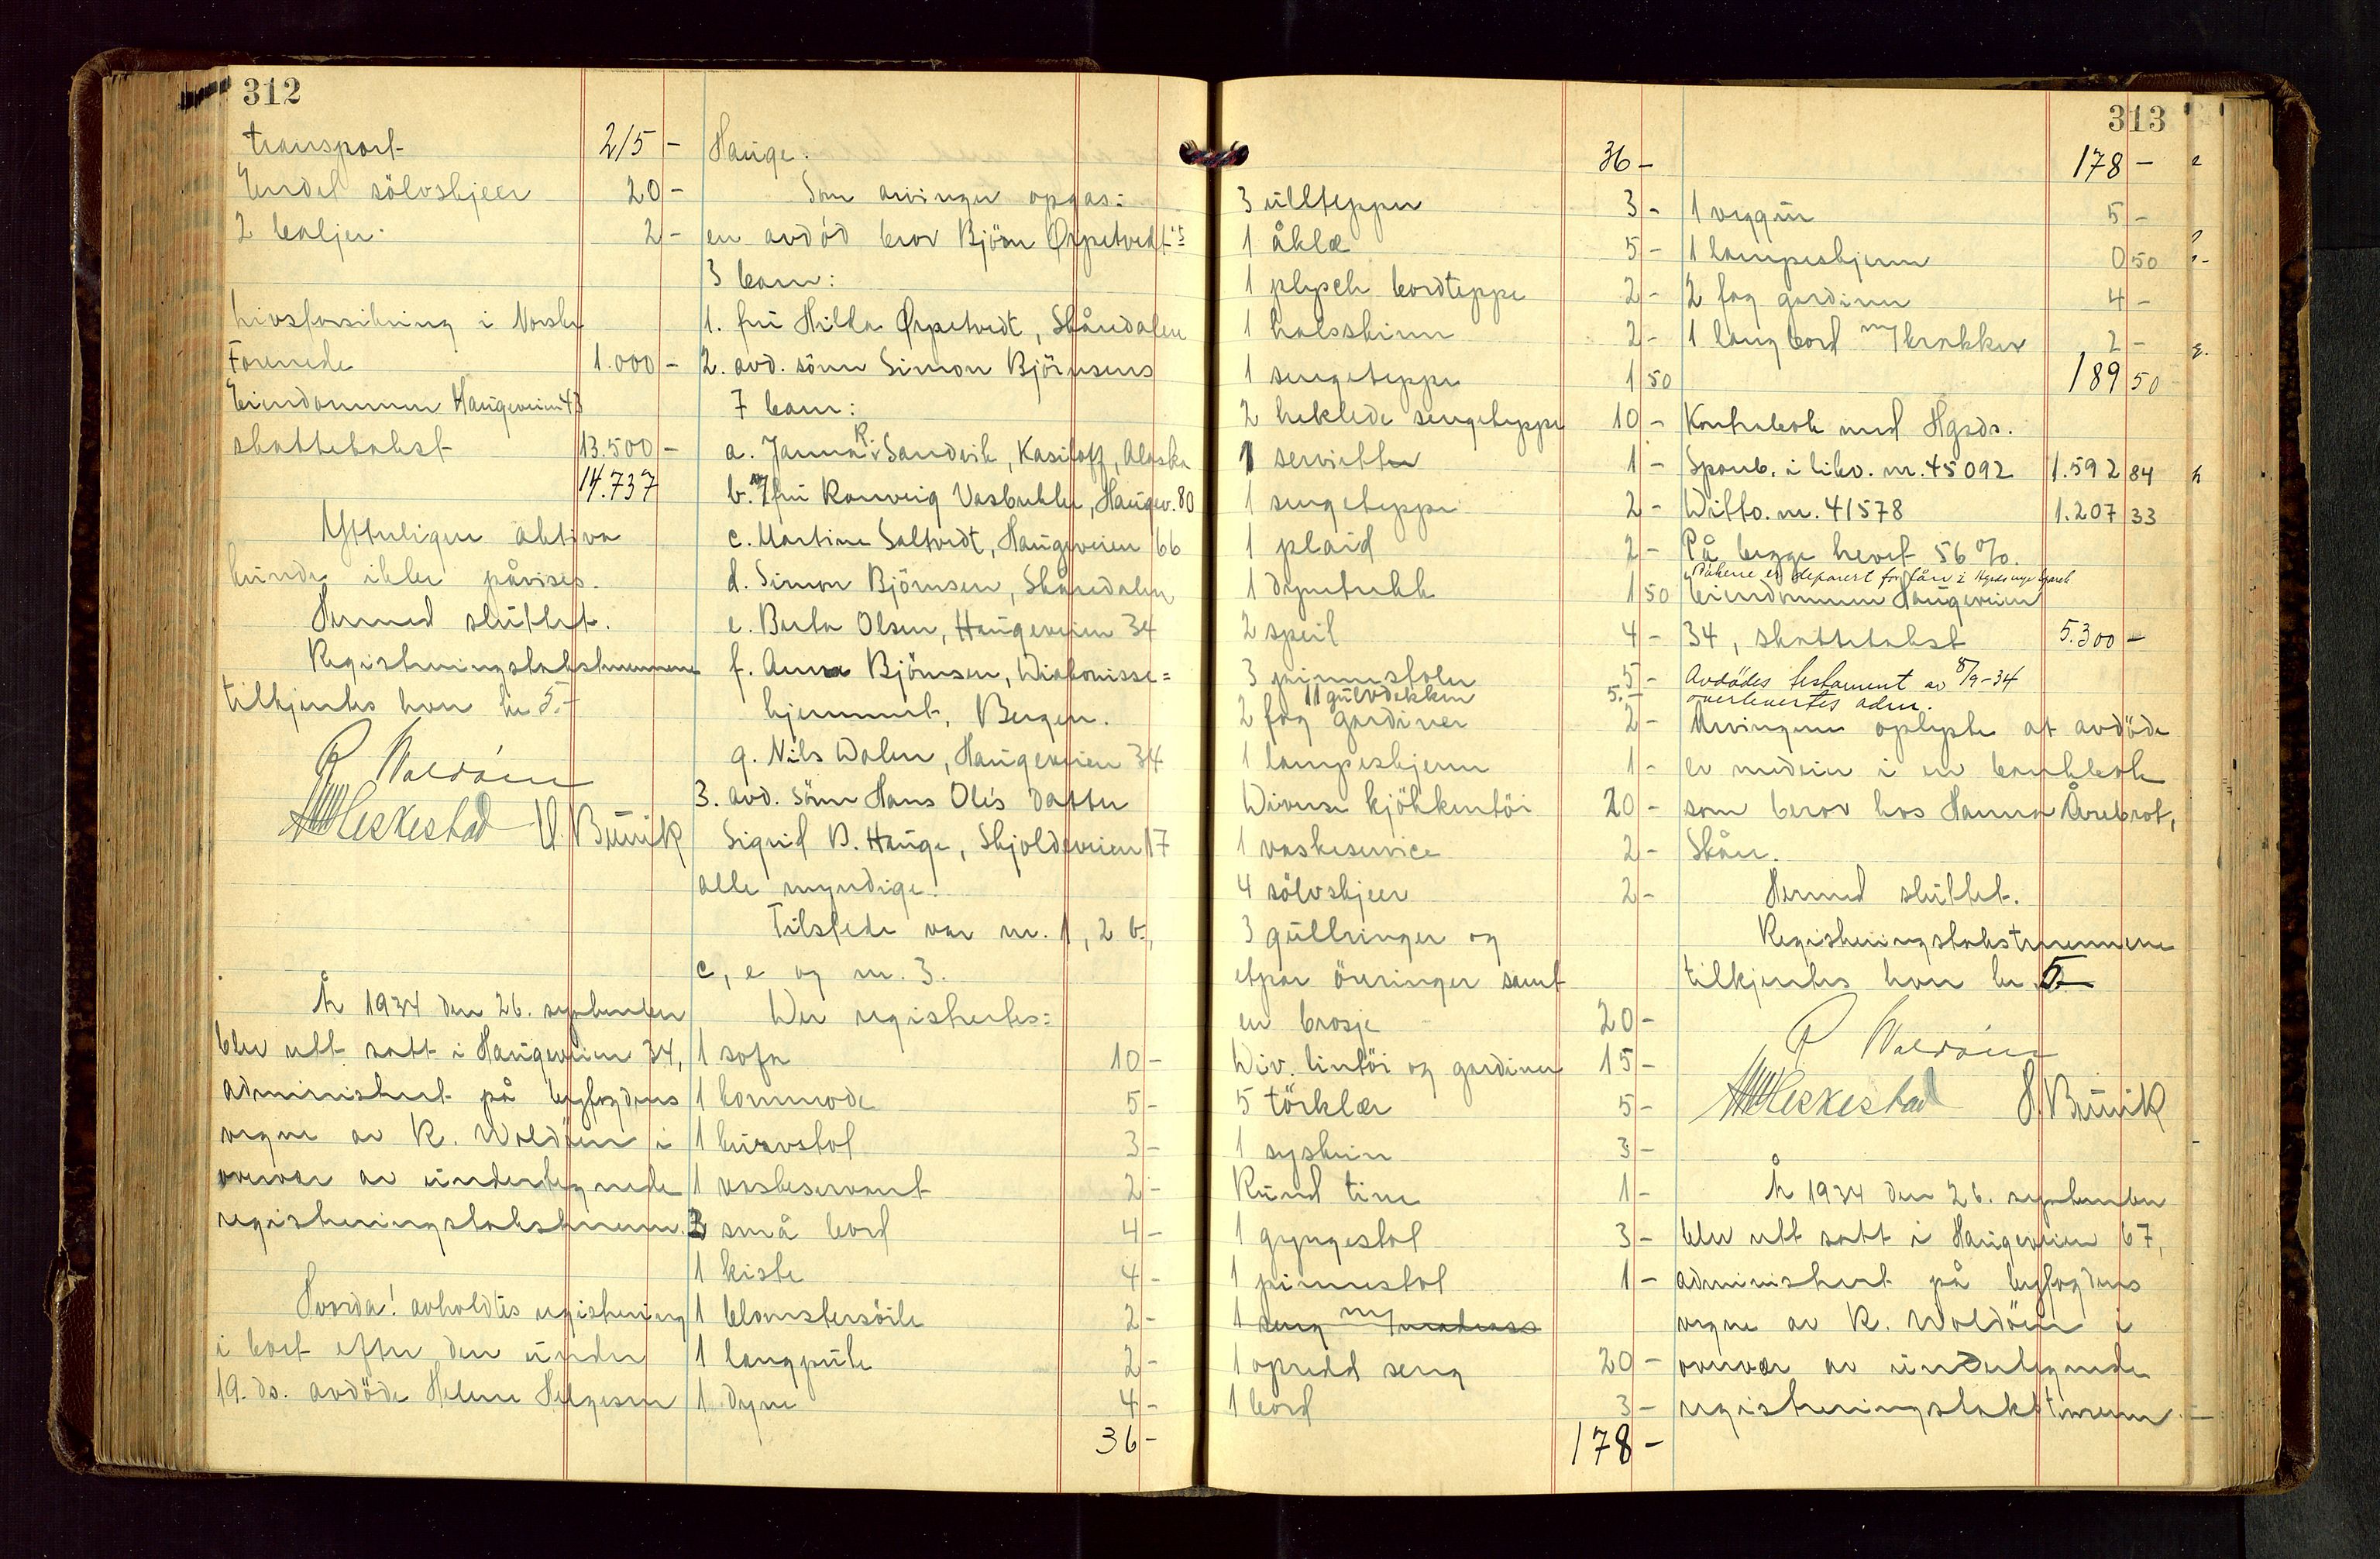 312
transport 215 -
Endel sölvskjeer 20 -
2 baljer. 2 -
Livsforsikring i Norske
Forenede 1.000 -
Eiendommen Haugeveien 43
skattetakst 13.500 -
14.737
Ytterligere aktiva
kunde ikke påvises.
Hermed sluttet.
Registreringstakstmennene
tilkjentes hver kr 5.-
R Waldöen
Heskestad
Å 1934 den 26. september
blev rett satt i Haugeveien 34,
administrert på byfogdens
vegne av R. Waldöen i
overvær av undertegnede
registreringstakstmenn.
Hvorda! avholdtes registrering
i boet efter den under
19. ds. avdöde Helene Helgesen
Hauge.
Som arvinger opgas:
en avdöd bror Björn Ørpetvedt's
3 barn:
1. fru Hilda Ørpetvedt, Skåredalen
2. avd. sönn Simon Björnsens
7 barn:
a. Janna R. Sandvik, Kasiloff, Alaska
b. fru Ranveig Vasbrekke, Haugev. 80
c. Martine Saltvedt, Haugeveien 66
d. Simon Björnsen, Skåredalen
e. Berta Olsen, Haugeveien 34
f. Anna Björnsen, Diakonisse=
hjemmet, Bergen.
g. Nils Dalen, Haugeveien 34
3. avd. sönn Hans Olés datter
Sigrid B. Hauge, Skjoldaveien 17
alle myndige.
Tilstede var nr. 1, 2 b.,
c, e og nr. 3.
Der registrertes:
1 sofa 10 -
1 kommode 5 -
1 kurvstol 3 -
1 vaskeservant 2 -
3 små bord 4 -
1 kiste 4 -
1 blomstersöile 2 -
1 langpute 2 -
1 dyne 4 -
36 -
36 -
3 ulltepper 3 -
1 åklæ 5 -
1 plysch bordteppe 2 -
1 halsskinn 2 -
1 sengeteppe 1 50
2 heklede sengeteppe 10 -
1 serviett 1 -
1 sengeteppe 2 -
1 plaid 2 -
1 dynetrekk 1 50
2 speil 4 -
3 pinnestoler 5 -
11 gulvdekken 5.-
2 fag gardiner 2 -
1 lampeskjerm 1 -
Diverse kjökkentöi 20 -
1 vaskeservice 2 -
4 sölvskjeer 2 -
3 gullringer og
etpar öreringer samt
en brosje 20 -
Div. lintöi og gardiner 15 -
5 törklær 5 -
1 syskrin 3 -
Rund tine 1 -
1 gyngestol 3 -
1 pinnestol 1 -
1 seng m/ madrass
1 opredd seng 20 -
1 bord 3 -
178 -
313
178 -
1 veggur 5 -
1 lampeskjerm 0 50
2 fag gardiner 4 -
1 langbord m/ krakker 2 -
189 50
Kontrabok med Hgsds.
Sparb. i likv. nr. 45092 1.592 84
Ditto. nr. 41578 1.207 33
På begge hevet 56 %.
Bökene er deponert for lån i Hgsds nye Spareb.
Eiendommen Haugeveien
34, skattetakst 5.300 -
Avdödes testament av 8/9-34
overlevertes adm.
Arvingene oplyste at avdöde
er medeier i en bankbok
som beror hos Hanna Årebrot,
Skåre.
Hermed sluttet.
Registreringstakstmennene
tilkjentes hver kr 5.-
R Waldöen
Heskestad
Å 1934 den 26. september
blev rett satt i Haugeveien 67,
administrert på byfogdens
vegne av R. Waldöen i
overvær av undertegnede
registreringstakstmenn.